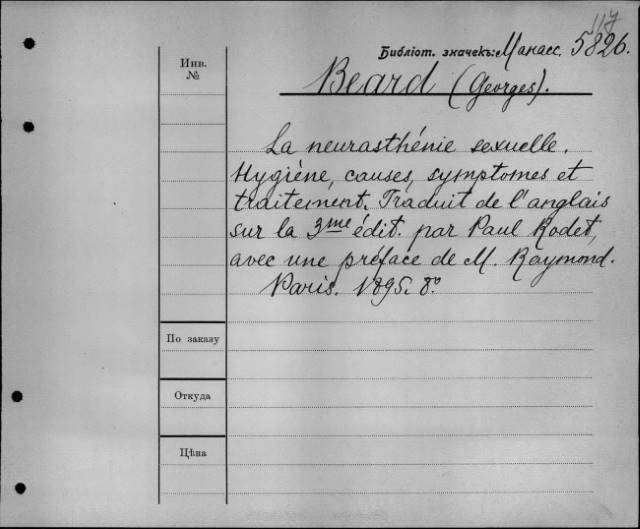 117
Библіот. значекъ: Манасс. 5826.
Инв.
№
Beard (Georges).
La neurasthénie sexuelle.
Hygiène, causes, symptomes et
traitement. Traduit de l'anglais
sur la 3me édit. par Paul Rodet,
avec une préface de M. Raymond.
Paris. 1895. 8°
По заказу
Откуда
Цѣна